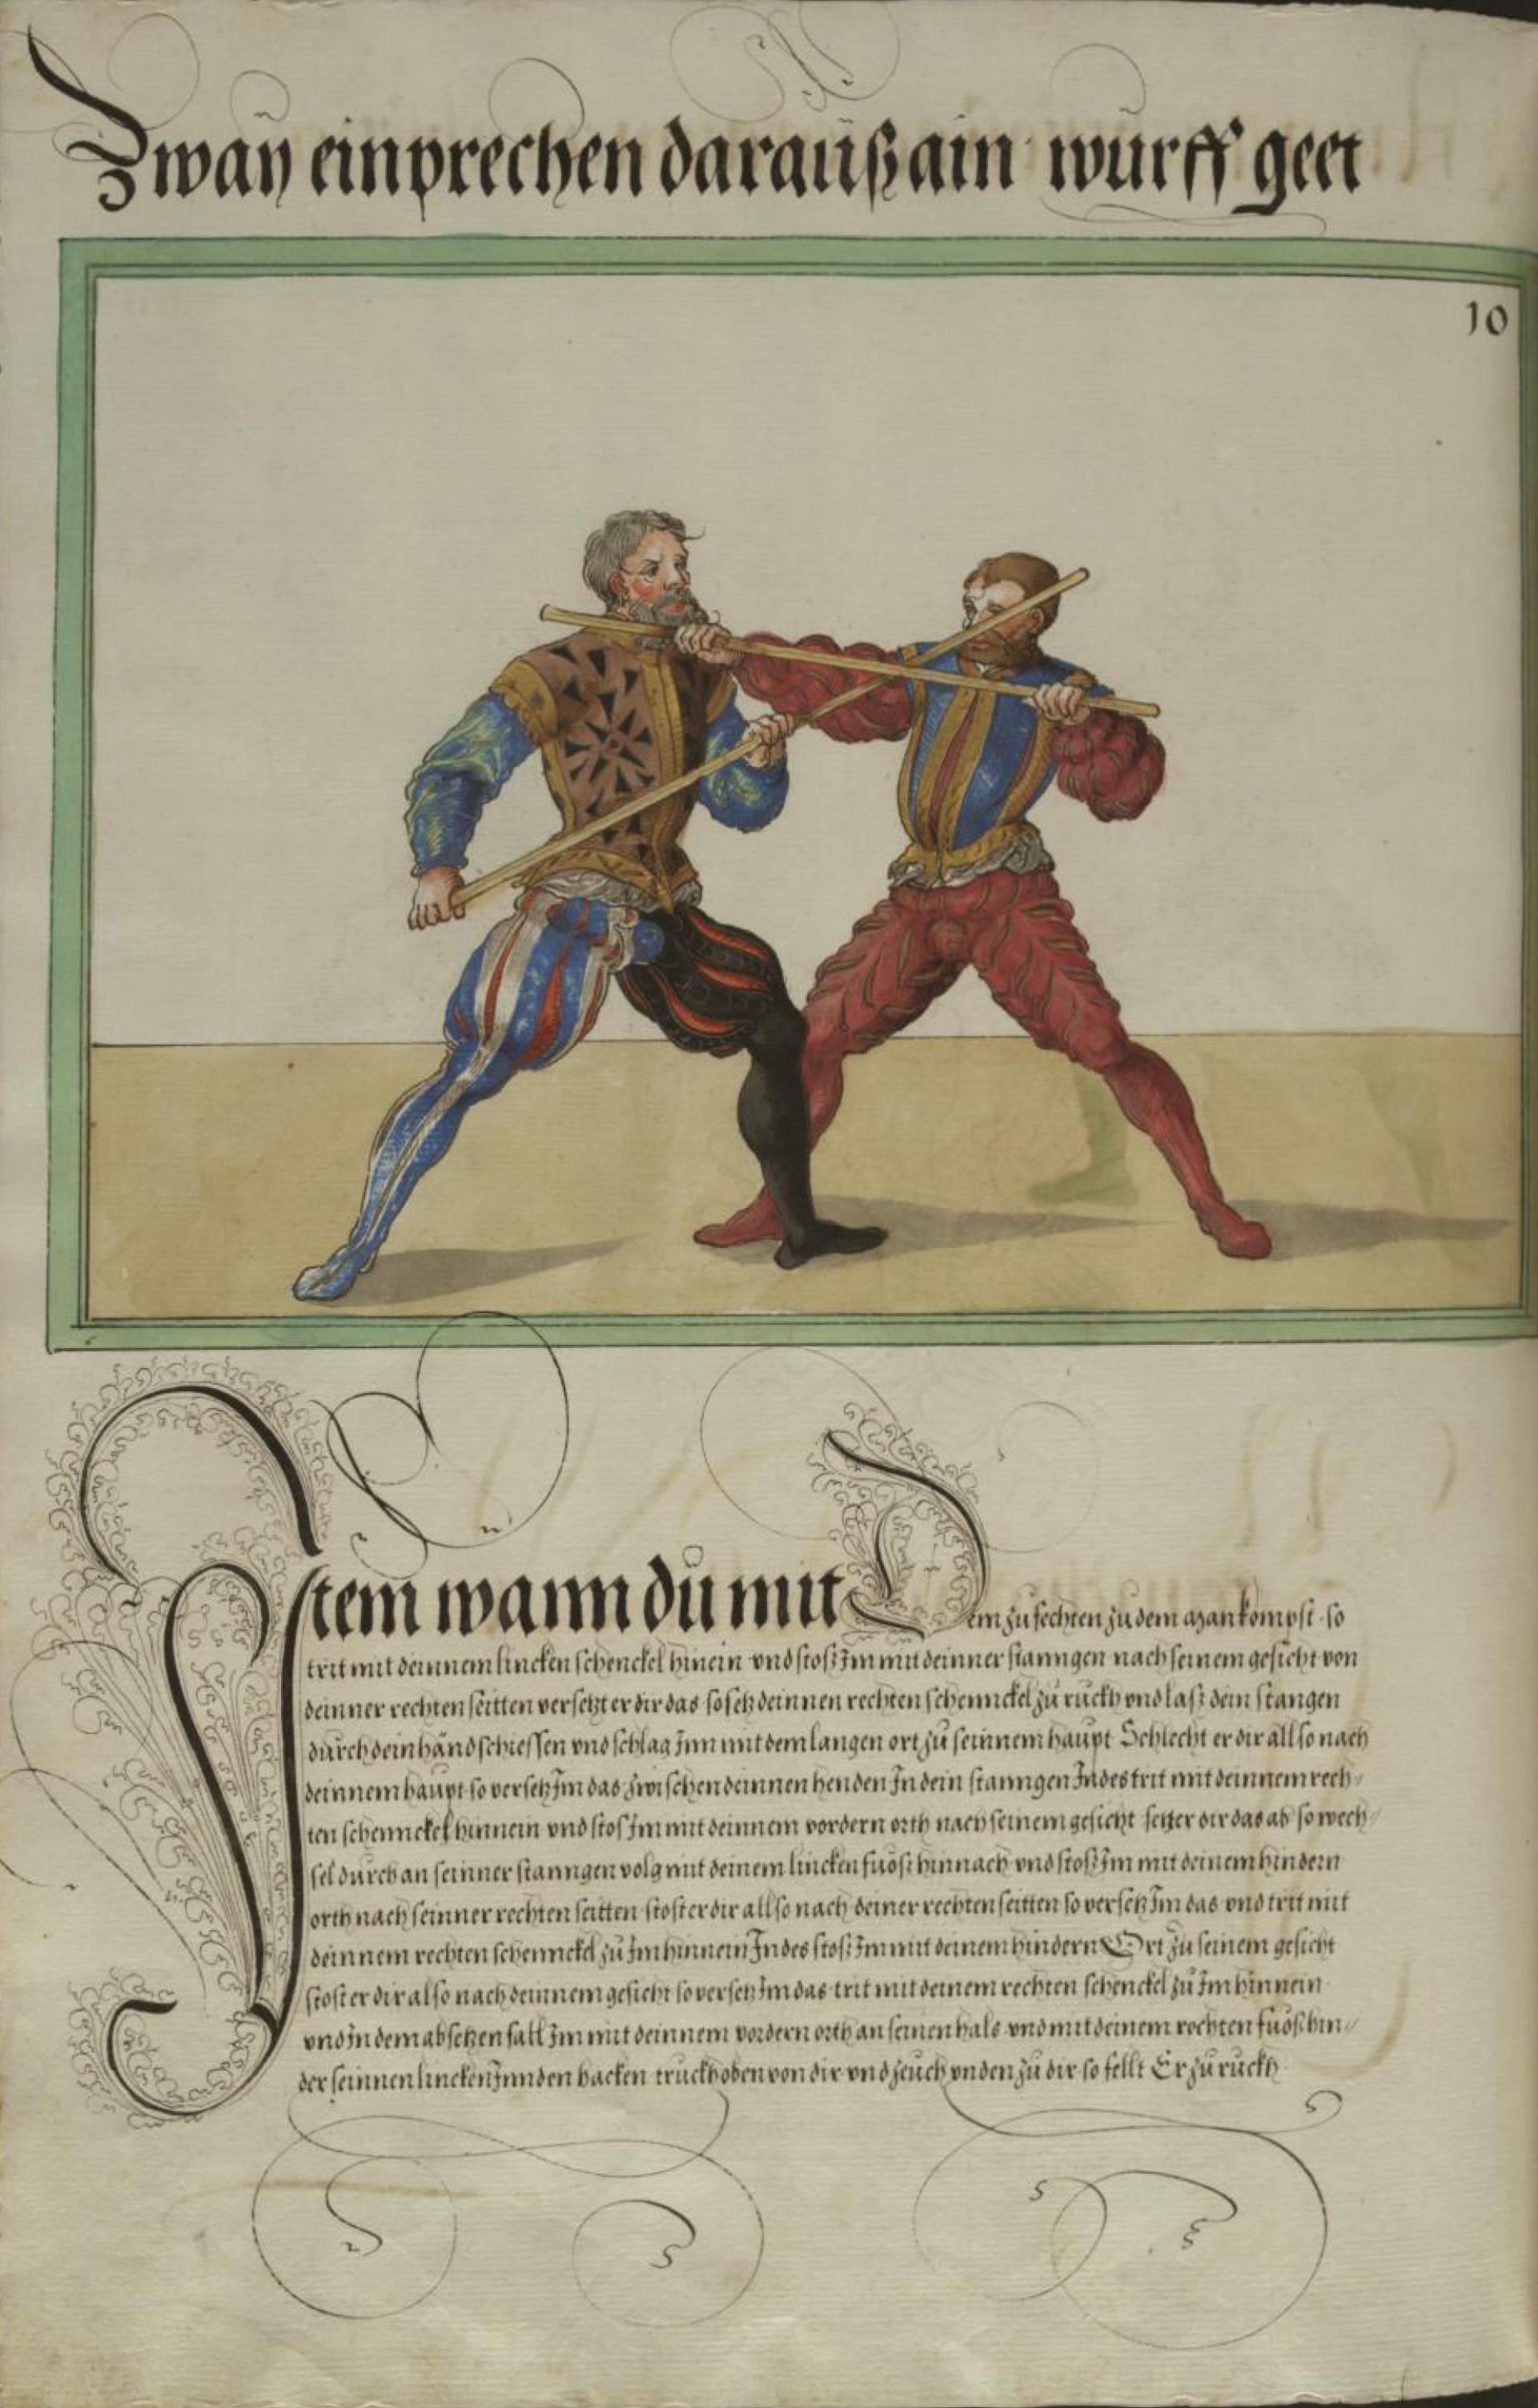 Zwaÿ einprechen darauß ain wurff geet
10
Item wann du mit Dem zufechten zu dem man kompst so
trit mit deinnem lincken schenckel hinein vnd stoß Im mit deinner stanngen nach seinem gesicht von
deinner rechten seitten versetzt er dir das so setz deinnen rechten schennckel zu ruckh vnd laß dein stangen
durch dein händ schiessen vnd schlag Inn mit dem langen ort zu seinnem haupt Schlecht er dir allso nach
deinnem haupt so versetz Im das zwischen deinnen henden In dein stanngen Indes trit mit deinnem rech
ten schennckel hinnein vnd stos Im mit deinnem vordern orth nach seinem gesicht setzt er dir das ab so wech
sel durch an seinner stanngen volg mit deinem lincken fuöß hinnach vnd stoß Im mit deinem hindern
orth nach seinner rechten seitten stost er dir allso nach deiner rechten seitten so versetz Im das vnd trit mit
deinnem rechten schennckel zu Im hinnein Indes stoß Im mit deinem hindern Ort zu seinem gesicht
stost er dir also nach deinnem gesicht so versetz Im das trit mit deinem rechten schenckel zu Im hinnein
vnd In dem absetzen fall Im mit deinnem vordern orth an seinen hals vnd mit deinem rechten fuöß hin
der seinnen lincken Inn den hacken truckh oben von dir vnd zeuch vnden zu dir so fellt Er zu ruckh